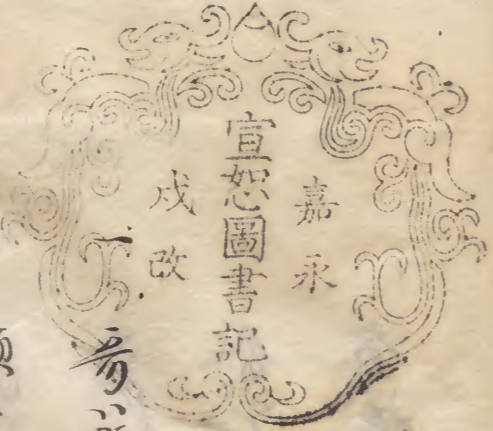 嘉永
宣恕圖書記
戌改